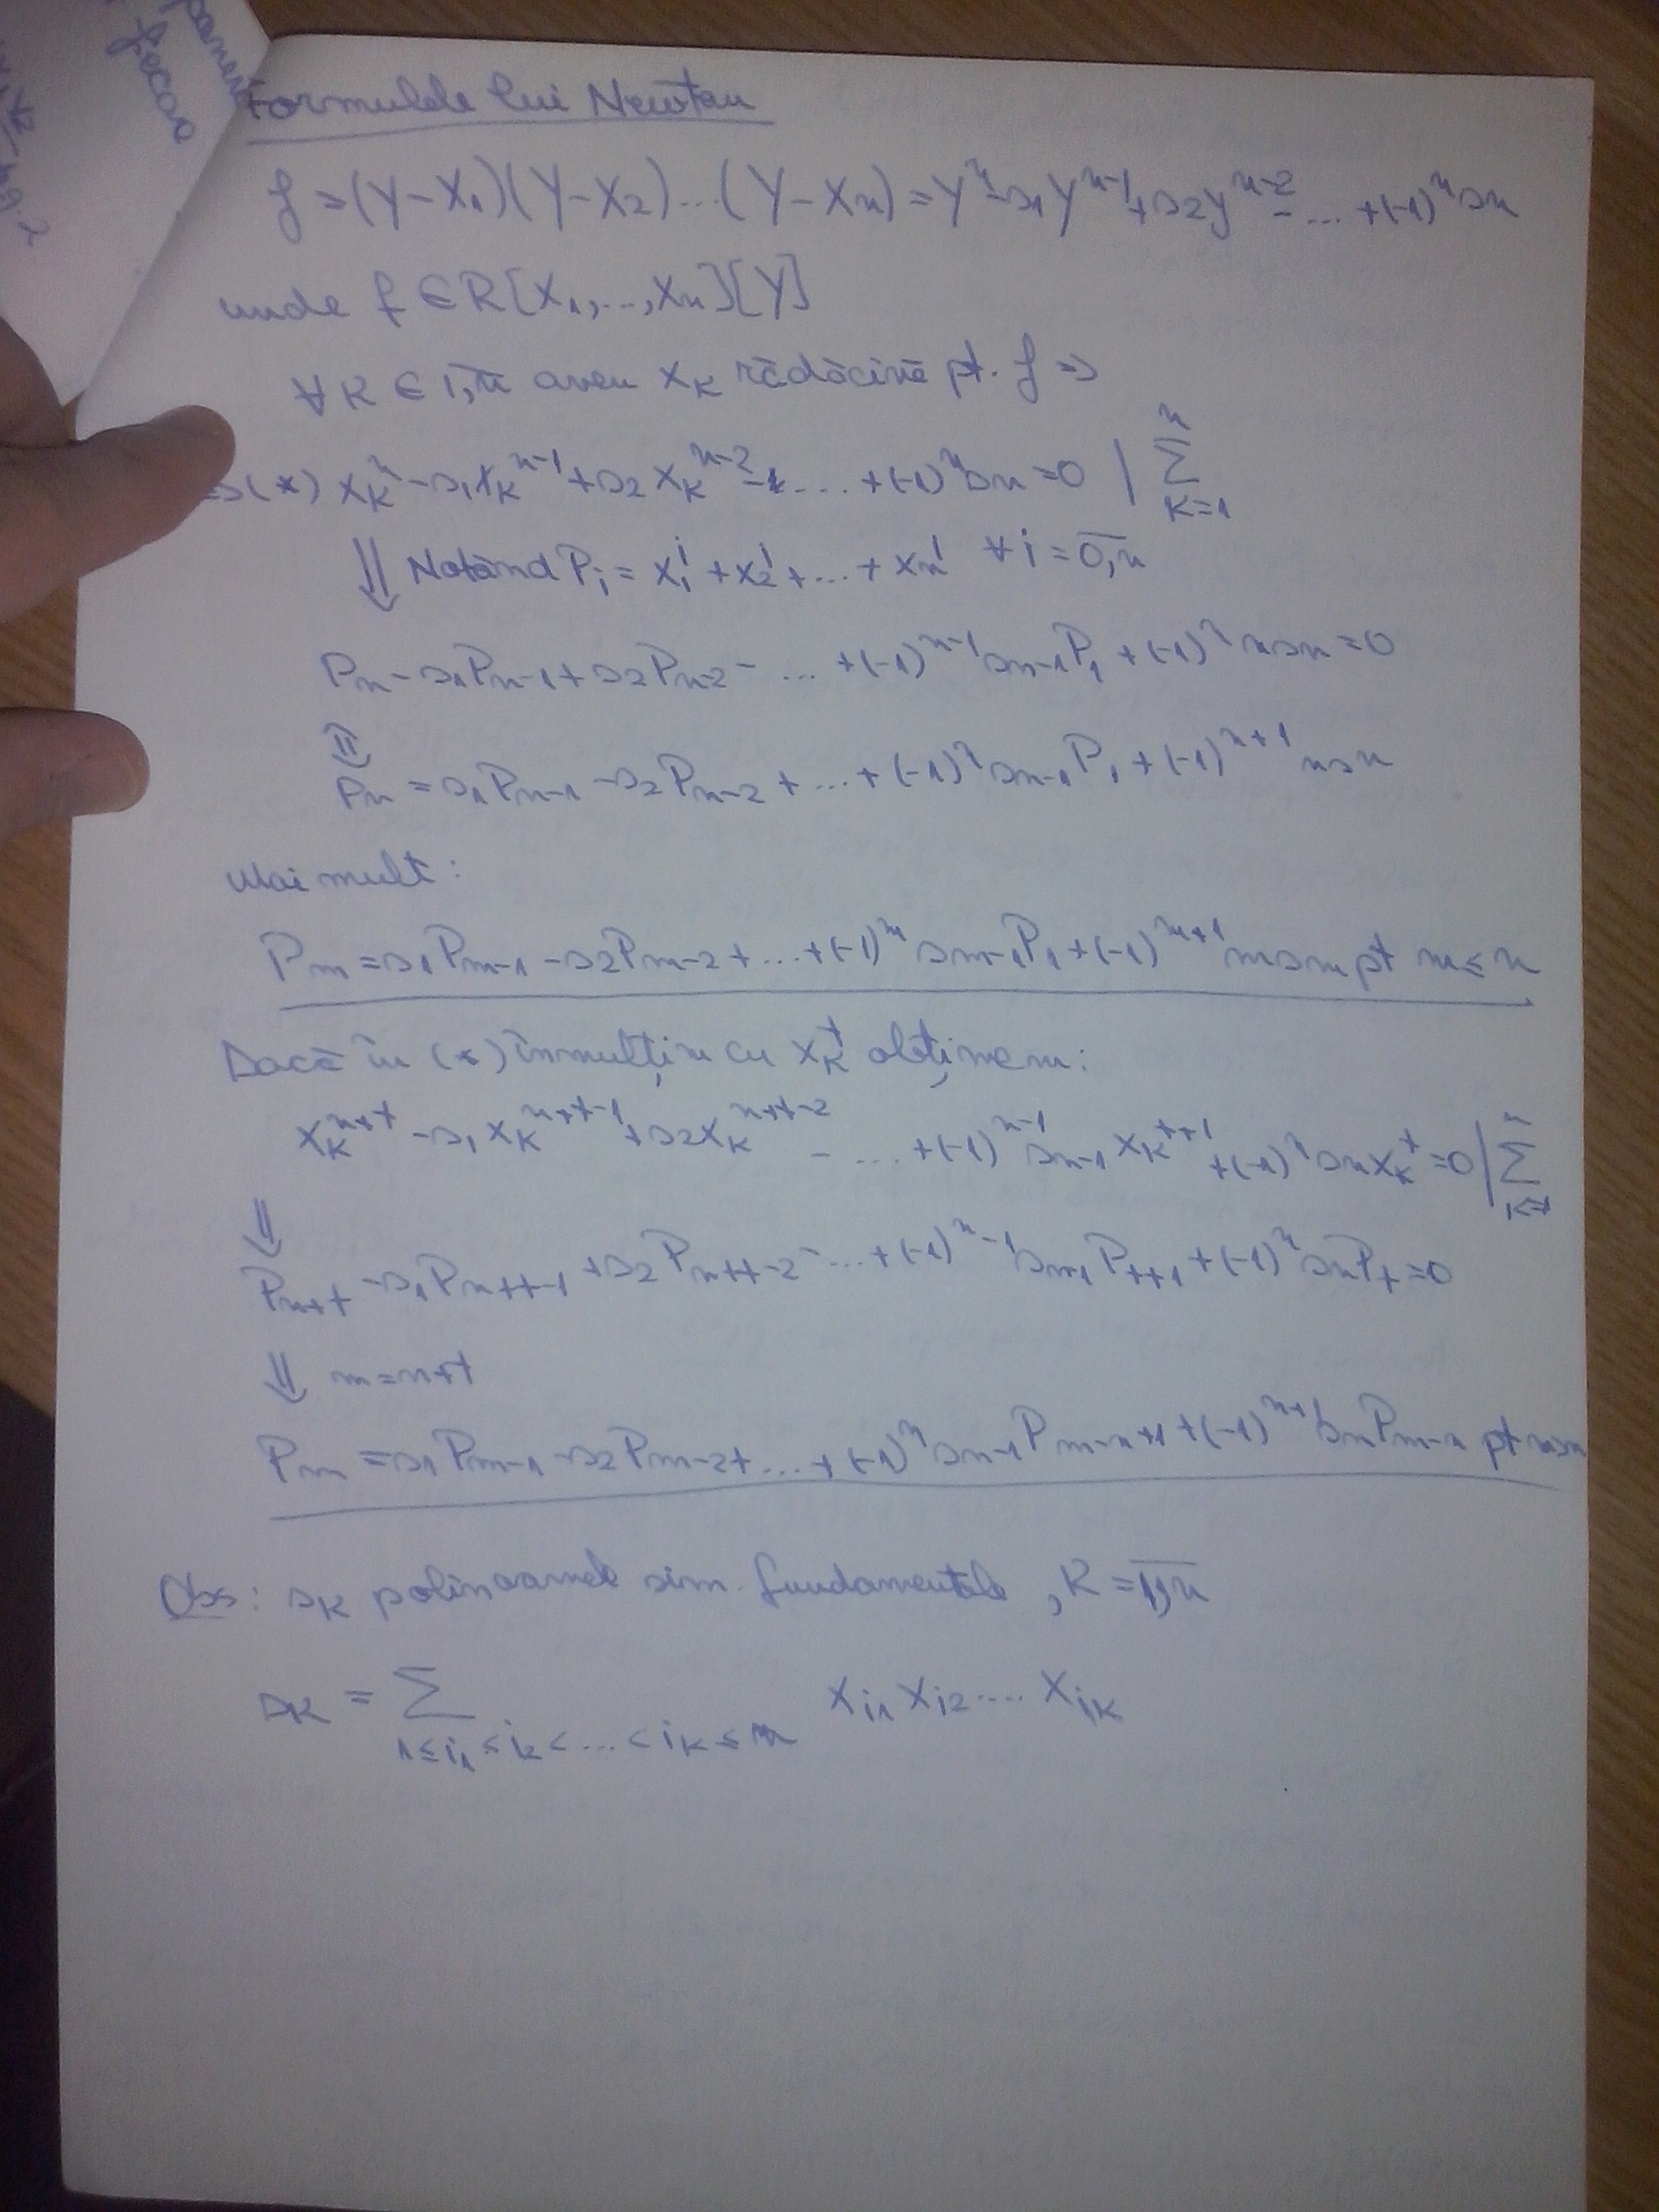 Formulele lui Newton
f=(Y-X₁)(Y-X₂)...(Y-Xₙ)=Yⁿ-s₁Yⁿ⁻¹+s₂Yⁿ⁻²-...+(-1)ⁿsₙ
unde f∈R[X₁,...,Xₙ][Y]
∀k∈1,n̅ avem Xₖ rădăcină pt. f ⇒
⇒(*) Xₖⁿ-s₁Xₖⁿ⁻¹+s₂Xₖⁿ⁻²-...+(-1)ⁿsₙ=0 | ∑ₖ₌₁ⁿ
⇓ Notând Pᵢ=X₁ⁱ+X₂ⁱ+...+Xₙⁱ ∀i=0,n̅
Pₙ-s₁Pₙ₋₁+s₂Pₙ₋₂-...+(-1)ⁿ⁻¹sₙ₋₁P₁+(-1)ⁿnsₙ=0
⇕
Pₙ=s₁Pₙ₋₁-s₂Pₙ₋₂+...+(-1)ⁿsₙ₋₁P₁+(-1)ⁿ⁺¹nsₙ
Mai mult:
Pₘ=s₁Pₘ₋₁-s₂Pₘ₋₂+...+(-1)ᵐsₘ₋₁P₁+(-1)ᵐ⁺¹msₘ pt m≤n
Dacă în (*) înmulțim cu Xₖᵗ obținem:
Xₖⁿ⁺ᵗ-s₁Xₖⁿ⁺ᵗ⁻¹+s₂Xₖⁿ⁺ᵗ⁻²-...+(-1)ⁿ⁻¹sₙ₋₁Xₖᵗ⁺¹+(-1)ⁿsₙXₖᵗ=0 | ∑ₖ₌₁ⁿ
⇓
Pₙ₊ₜ-s₁Pₙ₊ₜ₋₁+s₂Pₙ₊ₜ₋₂-...+(-1)ⁿ⁻¹sₙ₋₁Pₜ₊₁+(-1)ⁿsₙPₜ=0
⇓ m=n+t
Pₘ=s₁Pₘ₋₁-s₂Pₘ₋₂+...+(-1)ⁿsₙ₋₁Pₘ₋ₙ₊₁+(-1)ⁿ⁺¹sₙPₘ₋ₙ pt
Obs: sₖ polinoamele sim. fundamentale, k=1,n̅
sₖ = ∑ 1≤i₁<i₂<...<iₖ≤n Xᵢ₁Xᵢ₂....Xᵢₖ